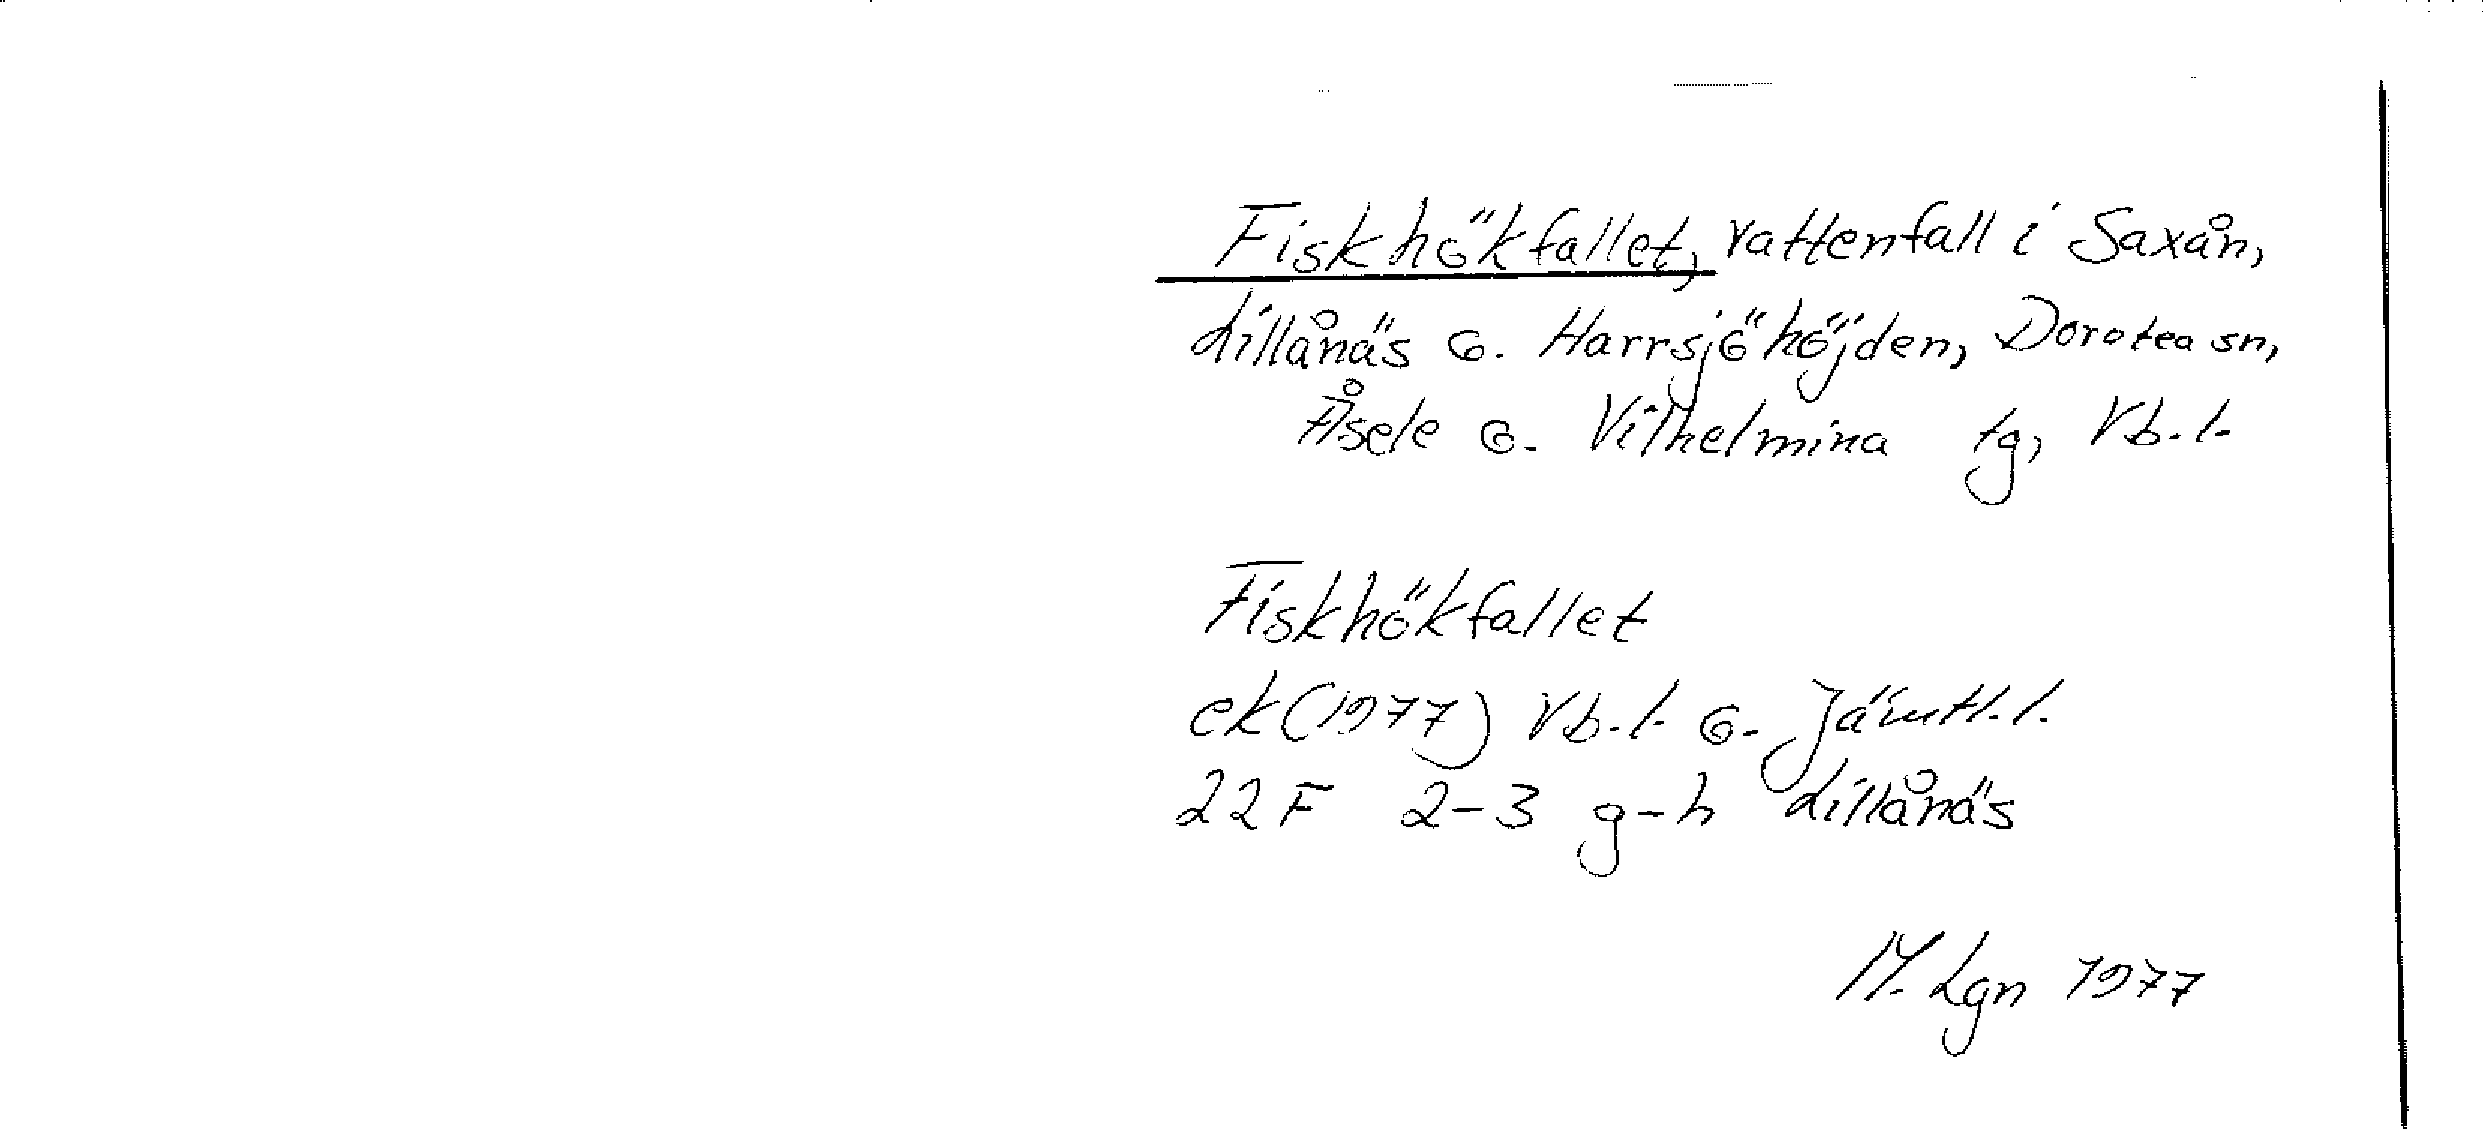 Fiskhökfallet, vattenfall i Saxån,
Lillånäs o. Harrsjöhöjden, Dorotea sn,
Åsele o. Vilhelmina tg, Vb.l.
Fiskhökfallet
ek (1977) Vb.l. o. Jämtl.l.
22 F 2-3 g-h Lillånäs
M. Lgn 1977